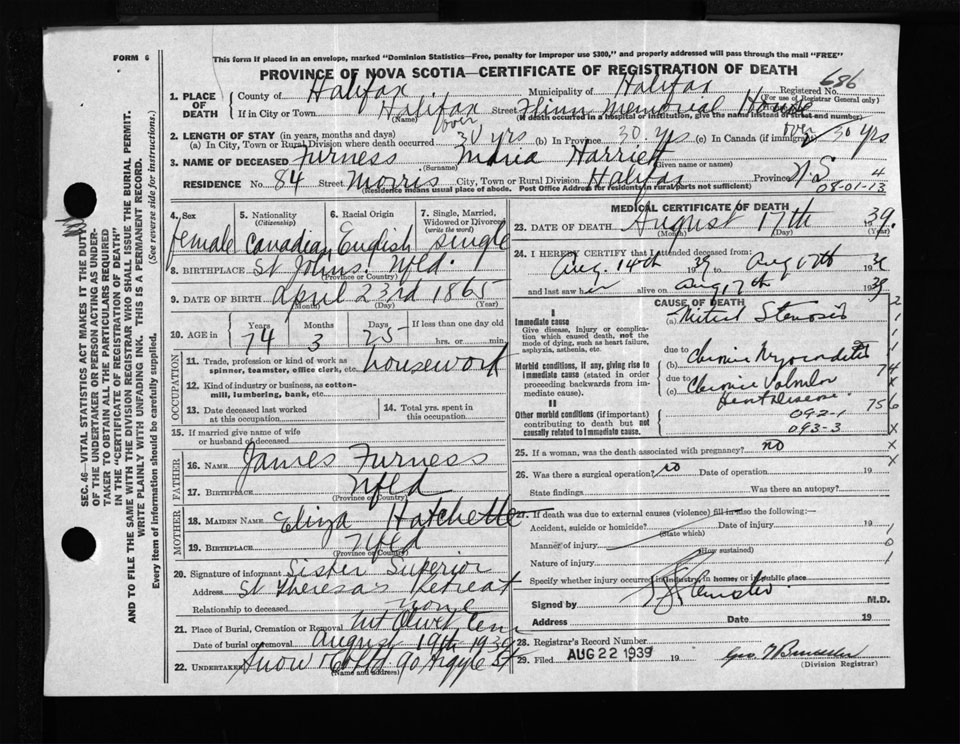 FORM 6
This form if placed in an envelope, marked "Dominion Statistics—Free, penalty for improper use $300," and properly addressed will pass through the mail "FREE"
PROVINCE OF NOVA SCOTIA—CERTIFICATE OF REGISTRATION OF DEATH
686
1. PLACE OF DEATH
County of Halifax Municipality of Halifax Registered No.
(For use of Registrar General only)
If in City or Town Halifax Street Flinn Memorial House
(Name) (If death occurred in a hospital or institution, give the name instead of street and number)
2. LENGTH OF STAY (in years, months and days)
(a) In City, Town or Rural Division where death occurred over 30 yrs (b) In Province 30 yrs (c) In Canada (if immigrant) over 30 yrs
3. NAME OF DECEASED Furness Maria Harriett
(Surname) (Given name or names)
RESIDENCE No. 84 Street Morris City, Town or Rural Division Halifax Province N.S. 4
(Residence means usual place of abode. Post Office Address for residents in rural parts not sufficient) 08-01-13
4. Sex
female
5. Nationality
(Citizenship)
Canadian
6. Racial Origin
English
7. Single, Married, Widowed or Divorced
(write the word)
single
8. BIRTHPLACE St Johns, Nfld.
(Province or Country)
9. DATE OF BIRTH April 23rd 1865
(Month) (Day) (Year)
10. AGE in
Years Months Days If less than one day old
74 3 25 hrs. or min.
OCCUPATION
11. Trade, profession or kind of work as spinner, teamster, office clerk, etc. housework
12. Kind of industry or business, as cotton-mill, lumbering, bank, etc.
13. Date deceased last worked at this occupation
14. Total yrs. spent in this occupation.
15. If married give name of wife or husband of deceased
FATHER
16. NAME James Furness
17. BIRTHPLACE Nfld
(Province or Country)
MOTHER
18. MAIDEN NAME Eliza Hatchette
19. BIRTHPLACE Nfld
(Province or Country)
20. Signature of informant Sister Superior
Address St Theresa's Retreat
Relationship to deceased none
21. Place of Burial, Cremation or Removal Mt Olivet Cem
Date of burial or removal August 19th 1939
22. UNDERTAKER Snow & Co Ltd 90 Argyle St
(Name and address)
MEDICAL CERTIFICATE OF DEATH
23. DATE OF DEATH August 17th 39
(Month) (Day) (Year)
24. I HEREBY CERTIFY that I attended deceased from:
Aug. 14th 1939 to Aug 17th 39
and last saw her alive on Aug 17th 1939
CAUSE OF DEATH
I
Immediate cause
Give disease, injury or complication which caused death, not the mode of dying, such as heart failure, asphyxia, asthenia, etc.
(a) Mitral Stenosis
due to
Morbid conditions, if any, giving rise to immediate cause (stated in order proceeding backwards from immediate cause).
(b) Chronic Myocarditis
due to
(c) Chronic Valvular
Heart Disease
II
Other morbid conditions (if important) contributing to death but not causally related to immediate cause.
092-1
093-3
25. If a woman, was the death associated with pregnancy? no
26. Was there a surgical operation? no Date of operation 19
State findings Was there an autopsy?
27. If death was due to external causes (violence) fill in also the following:—
Accident, suicide or homicide? Date of injury 19
(State which)
Manner of injury
(How sustained)
Nature of injury
Specify whether injury occurred in industry, in home, or in public place
Signed by M.D.
Address Date 19
28. Registrar's Record Number
29. Filed AUG 22 1939 19
(Division Registrar)
SEC. 46—VITAL STATISTICS ACT MAKES IT THE DUTY OF THE UNDERTAKER OR PERSON ACTING AS UNDERTAKER TO OBTAIN ALL THE PARTICULARS REQUIRED IN THE "CERTIFICATE OF REGISTRATION OF DEATH" AND TO FILE THE SAME WITH THE DIVISION REGISTRAR WHO SHALL ISSUE THE BURIAL PERMIT.
WRITE PLAINLY WITH UNFADING INK. THIS IS A PERMANENT RECORD.
Every item of information should be carefully supplied. (See reverse side for instructions.)